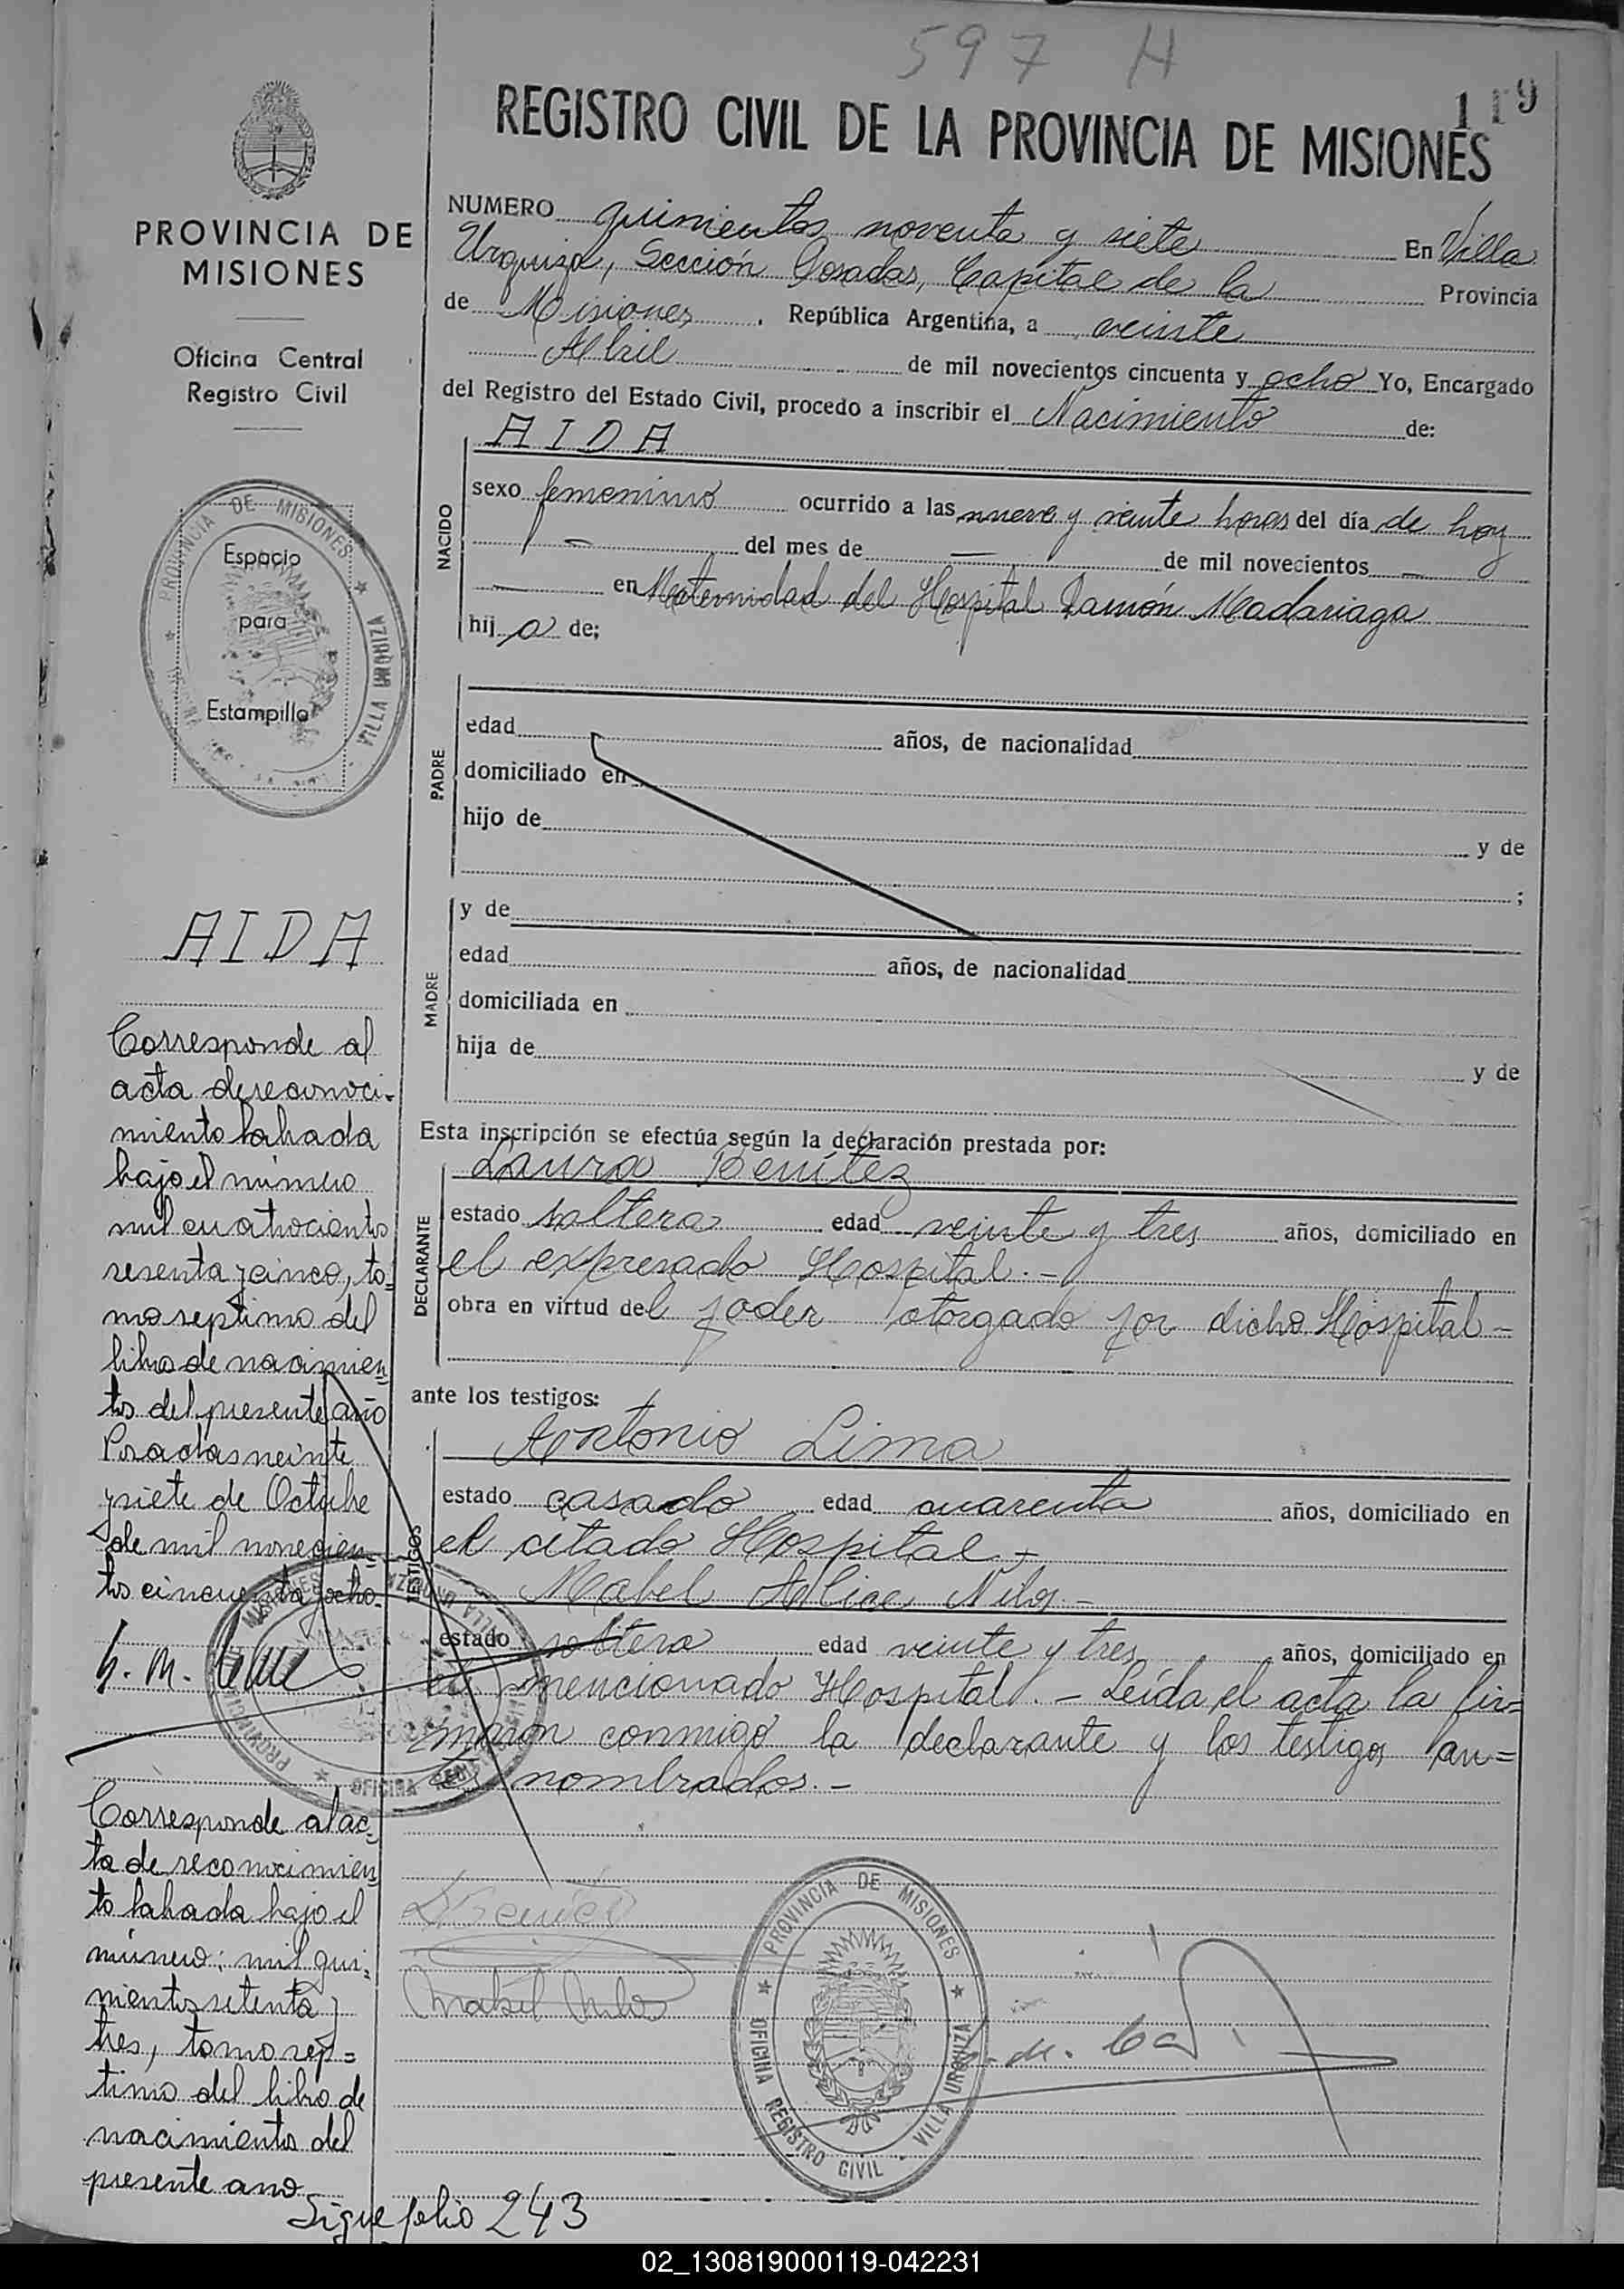 597 H
119
REGISTRO CIVIL DE LA PROVINCIA DE MISIONES
PROVINCIA DE
MISIONES
Oficina Central
Registro Civil
PROVINCIA DE MISIONES
VILLA URQUIZA
Espacio
para
Estampilla
AIDA
Corresponde al
acta de reconoci-
miento labrada
bajo el número
mil cuatrocientos
sesenta y cinco, to-
mo septimo del
libro de nacimien
tos del presente año
Posadas veinte
y siete de Octubre
de mil novecien-
tos cincuenta y ocho.
Corresponde al ac-
ta de reconocimien
to labrada bajo el
número: mil qui-
nientos setenta y
tres, tomo sép=
timo del libro de
nacimientos del
presente ano
Sigue folio 243
NUMERO quinientos noventa y siete En Villa
Urquiza, Sección Posadas, Capital de la Provincia
de Misiones, República Argentina, a veinte
Abril de mil novecientos cincuenta y ocho Yo, Encargado
del Registro del Estado Civil, procedo a inscribir el Nacimiento de:
NACIDO
AIDA
sexo femenino ocurrido a las nueve y veinte horas del día de hoy
- del mes de - de mil novecientos -
- en Maternidad del Hospital Ramón Madariaga
hij a de;
PADRE
edad años, de nacionalidad
domiciliado en
hijo de y de
;
MADRE
y de
edad años, de nacionalidad
domiciliada en
hija de y de
Esta inscripción se efectúa según la declaración prestada por:
DECLARANTE
Laura Benítez
estado soltera edad veinte y tres años, domiciliado en
el expresado Hospital.-
obra en virtud del poder otorgado por dicho Hospital-
ante los testigos:
TESTIGOS
Antonio Lima
estado casado edad cuarenta años, domiciliado en
el citado Hospital
Mabel Alice Nilo -
estado soltera edad veinte y tres años, domiciliado en
el mencionado Hospital.- Leída el acta la fir=
maron conmigo la declarante y los testigos an=
tes nombrados.-
L Benitez
Mabel Nilo
PROVINCIA DE MISIONES
OFICINA REGISTRO CIVIL · VILLA URQUIZA
02_130819000119-042231